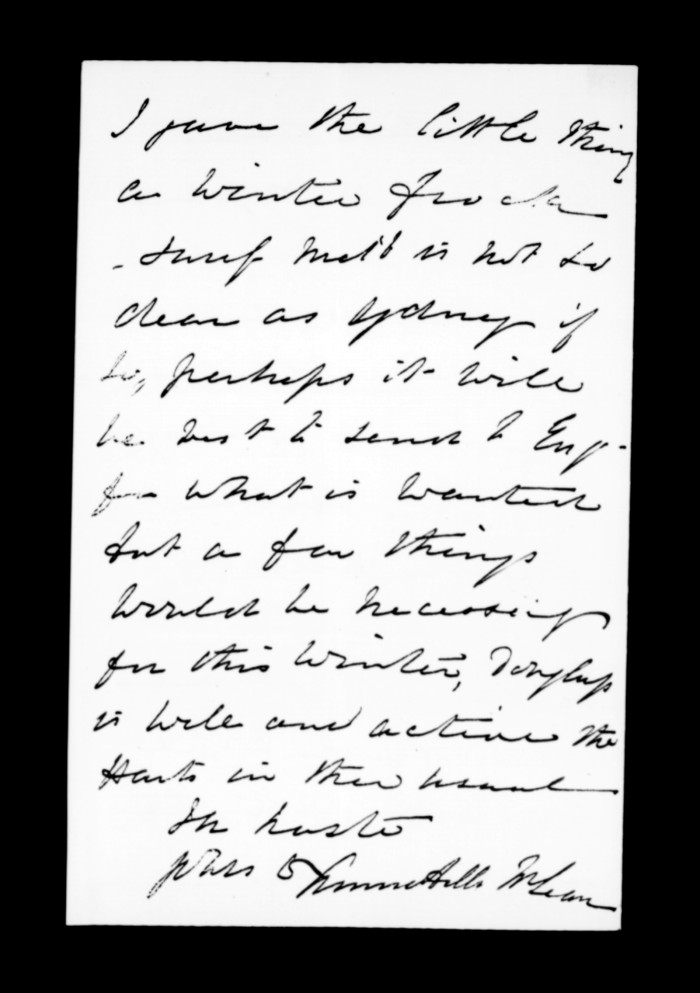 I gave the little thing
a winter frock
- Melb is not so
dear as Sydney if
so, perhaps it will
be best to send to Eng-
for what is wanted
but a few things
would be necessary
for this winter, Douglas
is well and active the
Harts in their usual
In haste
yours McLean